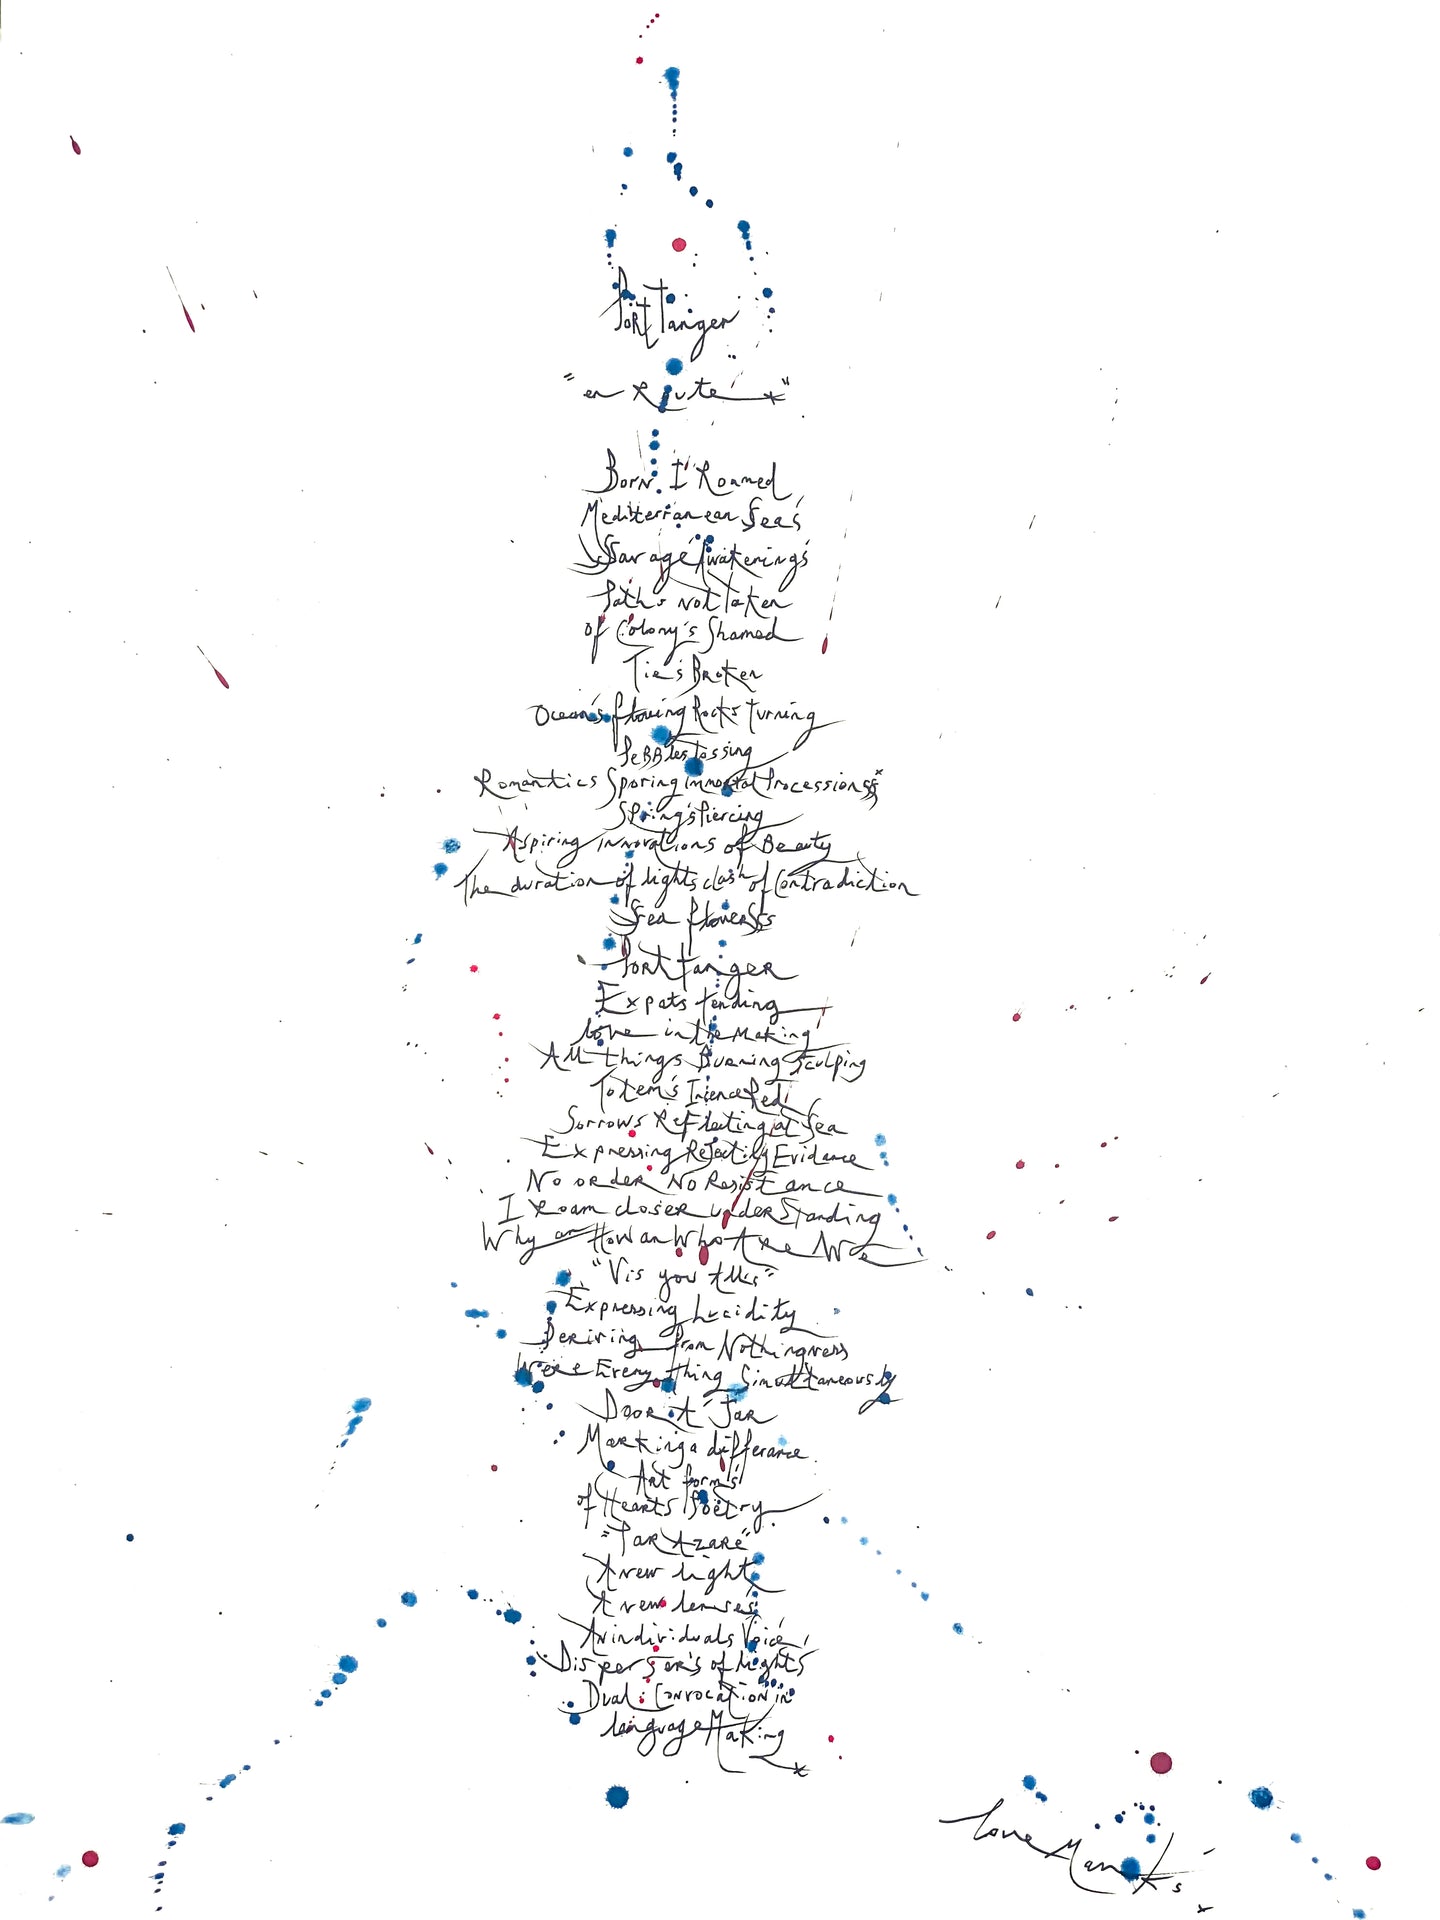 Port Tanger
"en Route"
Born I Roamed
Mediterranean Sea's
Savage Awakening's
Paths Not Taken
of Colony's Shamed
Tie's Broken
Ocean's flowing Rocks Turning
PeBBles Tossing
Romantics Sporing Immortal Processions
Spring's Piercing
Aspiring Innovations of Beauty
The duration of lights clash of Contradiction
Sea flowers
Port Tanger
Expats tending
love in the Making
All things Burning Sculping
Totem's
Sorrows Reflecting at Sea
Expressing Rejecting Evidence
No order No Resistance
I Roam closer underStanding
Why an How an Who Are We
"Vis you
Expressing Lucidity
Deriving from Nothingness
Were Every thing Simultaneously
Door A' Jar
Marking a differance
Art form's
of Hearts Poetry
"Par Azare"
A new light
A new lenses
An individuals Voice
Disperser's of lights
Dual Convocation in
language Making
love